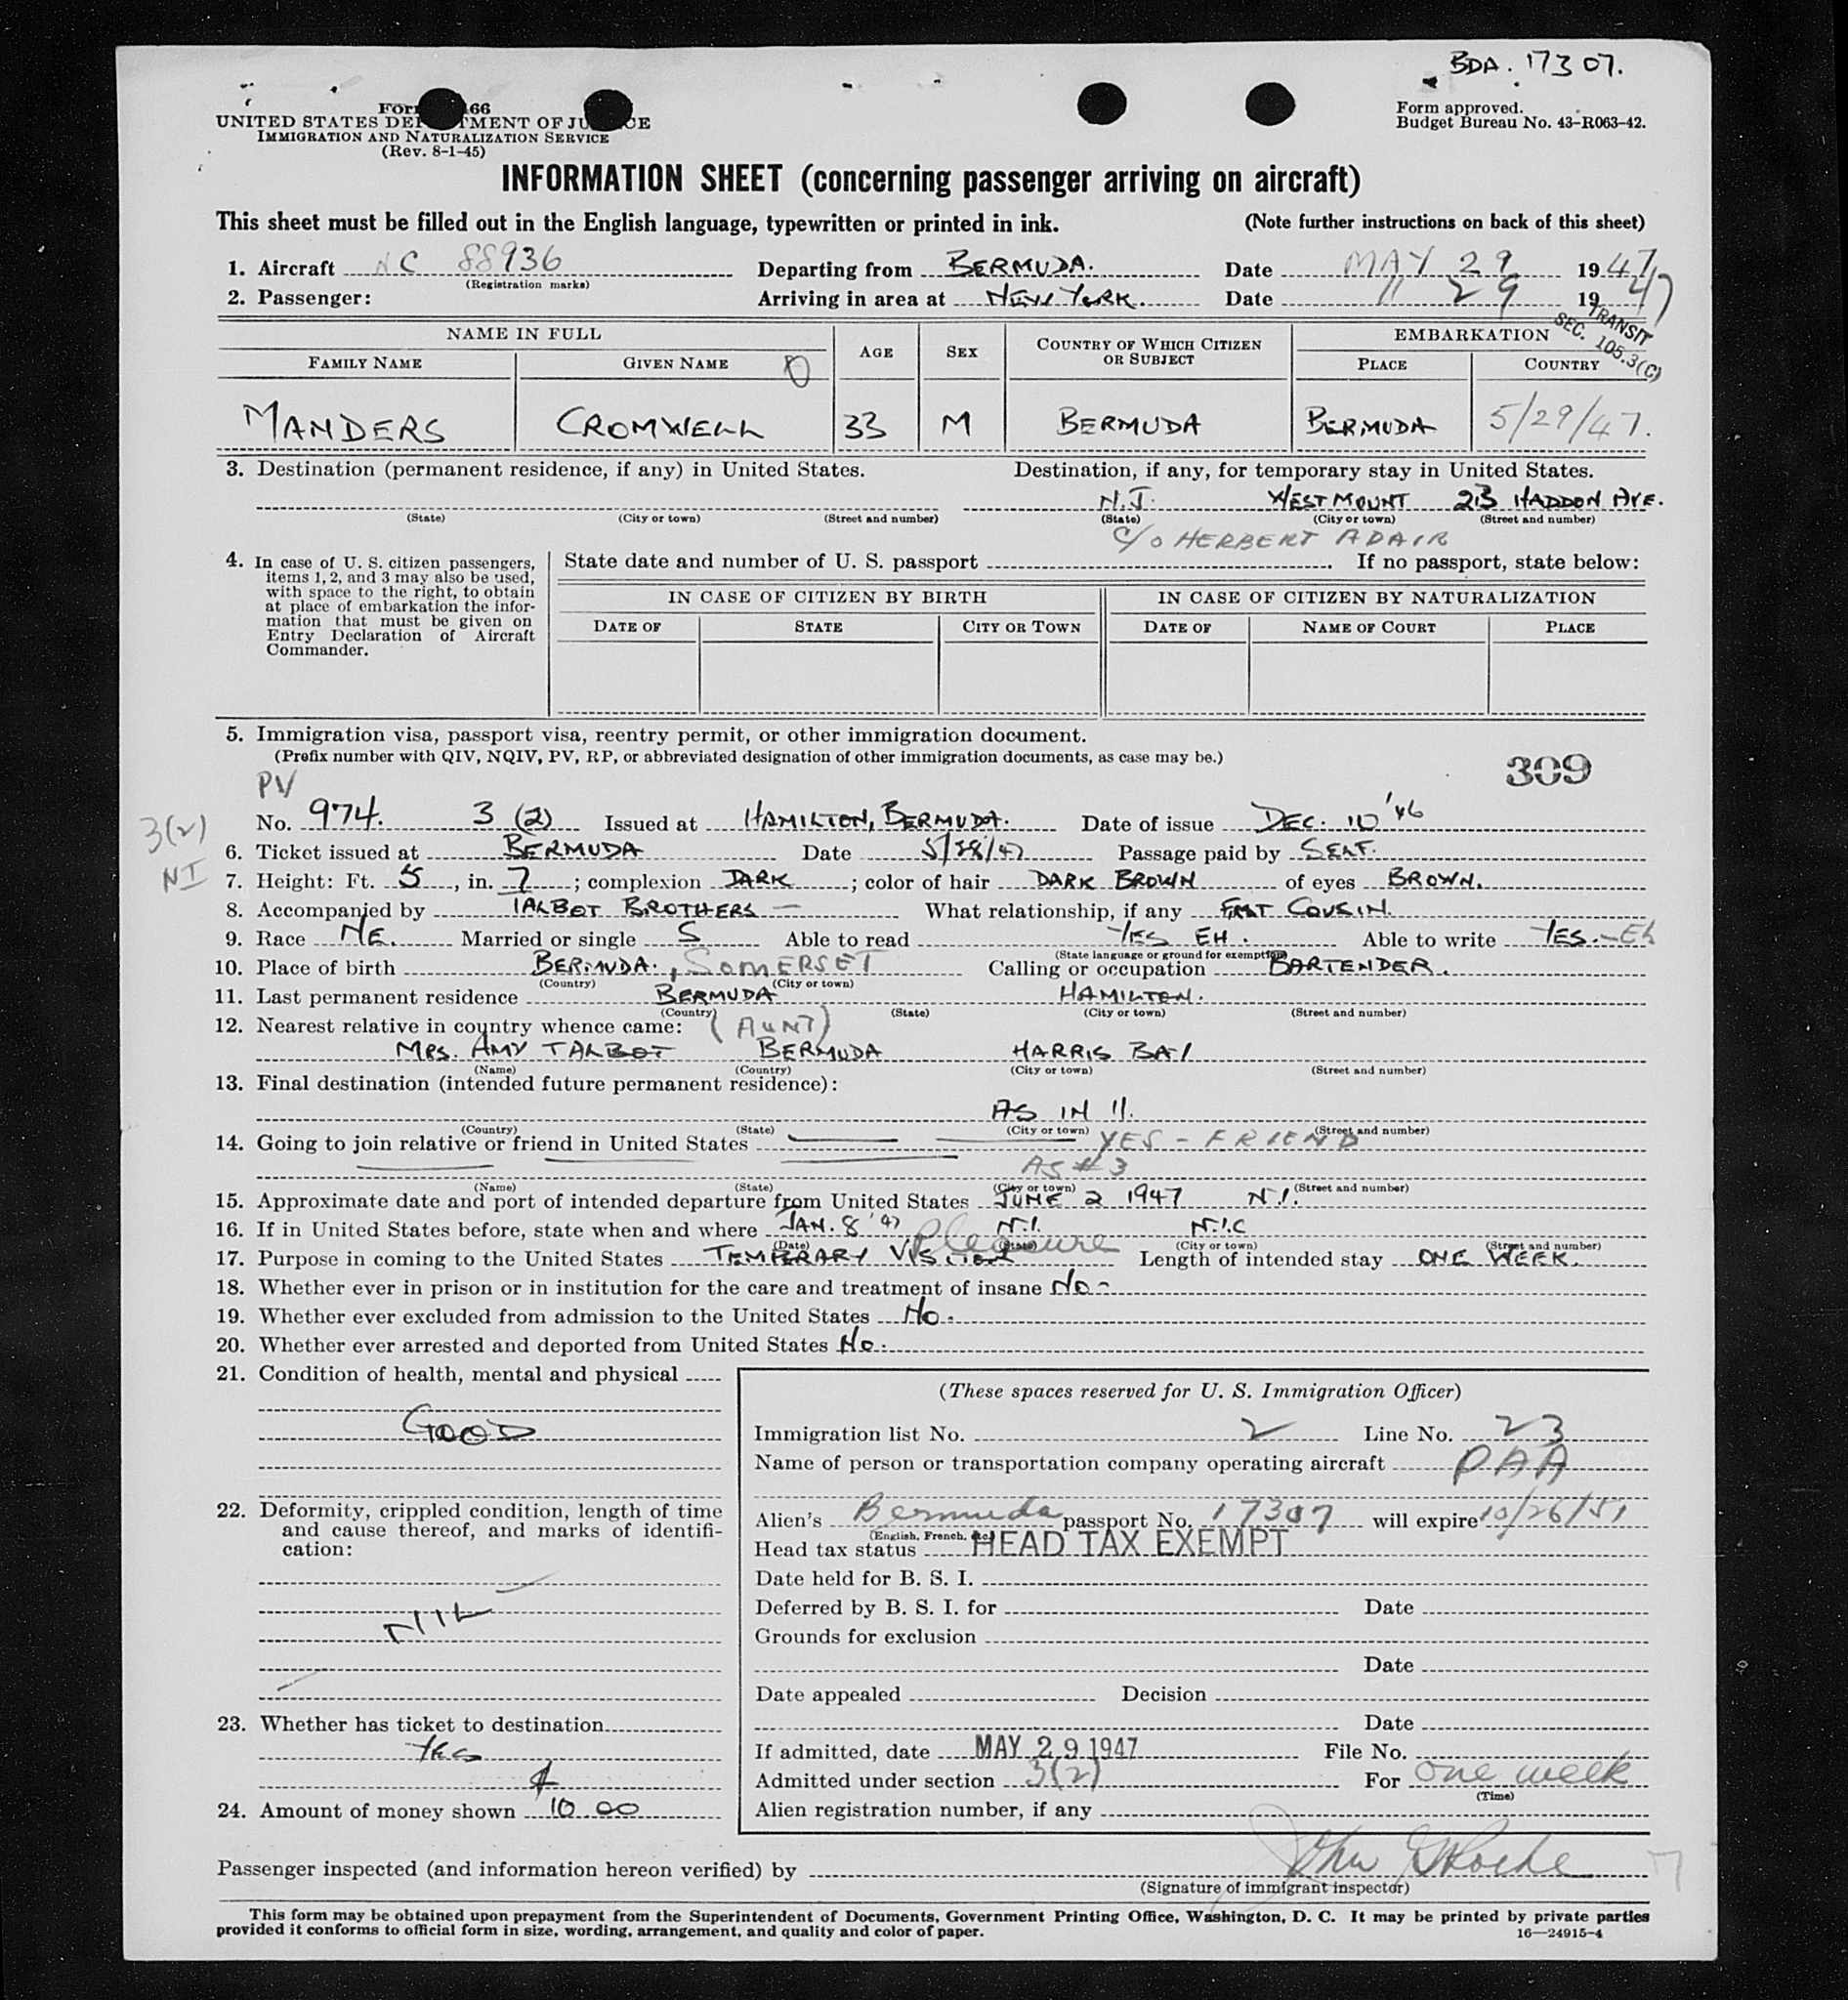 BDA. 17307.
Form 66
UNITED STATES DEP TMENT OF JU CE
IMMIGRATION AND NATURALIZATION SERVICE
(Rev. 8-1-45)
Form approved.
Budget Bureau No. 43-R063-42.
INFORMATION SHEET (concerning passenger arriving on aircraft)
This sheet must be filled out in the English language, typewritten or printed in ink. (Note further instructions on back of this sheet)
1. Aircraft NC 88936 Departing from BERMUDA. Date MAY 29 1947
(Registration marks)
2. Passenger: Arriving in area at NEW YORK. Date " 29 1947
TRANSIT
SEC. 105.3(C)
NAME IN FULL AGE SEX COUNTRY OF WHICH CITIZEN OR SUBJECT EMBARKATION
FAMILY NAME GIVEN NAME PLACE COUNTRY
MANDERS CROMWELL 33 M BERMUDA BERMUDA 5/29/47.
3. Destination (permanent residence, if any) in United States. Destination, if any, for temporary stay in United States.
N.J. WESTMOUNT 213 HADDON AVE.
(State) (City or town) (Street and number) (State) (City or town) (Street and number)
C/O HERBERT ADAIR
4. In case of U. S. citizen passengers, items 1, 2, and 3 may also be used, with space to the right, to obtain at place of embarkation the information that must be given on Entry Declaration of Aircraft Commander.
State date and number of U. S. passport . If no passport, state below:
IN CASE OF CITIZEN BY BIRTH IN CASE OF CITIZEN BY NATURALIZATION
DATE OF STATE CITY OR TOWN DATE OF NAME OF COURT PLACE
5. Immigration visa, passport visa, reentry permit, or other immigration document.
(Prefix number with QIV, NQIV, PV, RP, or abbreviated designation of other immigration documents, as case may be.)
309
PV
No. 974. 3 (2) Issued at HAMILTON, BERMUDA. Date of issue DEC. 10 '46
3(2)
NI
6. Ticket issued at BERMUDA Date 5/28/47 Passage paid by SELF.
7. Height: Ft. 5, in. 7; complexion DARK; color of hair DARK BROWN of eyes BROWN.
8. Accompanied by TALBOT BROTHERS — What relationship, if any COUSIN.
9. Race NE. Married or single S Able to read YES EH. Able to write YES.-Eh
(State language or ground for exemption)
10. Place of birth BERMUDA., SOMERSET Calling or occupation BARTENDER.
(Country) (City or town)
11. Last permanent residence BERMUDA HAMILTON.
(Country) (State) (City or town) (Street and number)
12. Nearest relative in country whence came: (AUNT)
MRS. AMY TALBOT BERMUDA HARRIS BAY
(Name) (Country) (City or town) (Street and number)
13. Final destination (intended future permanent residence):
AS IN 11.
(Country) (State) (City or town) (Street and number)
14. Going to join relative or friend in United States YES - FRIEND
AS #3
(Name) (State) (City or town) (Street and number)
15. Approximate date and port of intended departure from United States JUNE 2 1947 N.Y.
16. If in United States before, state when and where JAN. 8 '47 N.Y. N.Y.C
(Date) (State) (City or town) (Street and number)
Pleasure
17. Purpose in coming to the United States TEMPRARY Length of intended stay ONE WEEK.
18. Whether ever in prison or in institution for the care and treatment of insane NO-
19. Whether ever excluded from admission to the United States NO.
20. Whether ever arrested and deported from United States NO.
21. Condition of health, mental and physical
GOOD
22. Deformity, crippled condition, length of time and cause thereof, and marks of identification:
NIL
23. Whether has ticket to destination
YES
24. Amount of money shown $ 10.00
(These spaces reserved for U. S. Immigration Officer)
Immigration list No. 2 Line No. 23
Name of person or transportation company operating aircraft PAA
Alien's Bermuda passport No. 17307 will expire 10/26/51
(English, French, etc.)
Head tax status HEAD TAX EXEMPT
Date held for B. S. I.
Deferred by B. S. I. for Date
Grounds for exclusion
Date
Date appealed Decision
Date
If admitted, date MAY 29 1947 File No.
Admitted under section 3(2) For One week
(Time)
Alien registration number, if any
Passenger inspected (and information hereon verified) by John
(Signature of immigrant inspector)
This form may be obtained upon prepayment from the Superintendent of Documents, Government Printing Office, Washington, D. C. It may be printed by private parties
provided it conforms to official form in size, wording, arrangement, and quality and color of paper. 16—24915-4